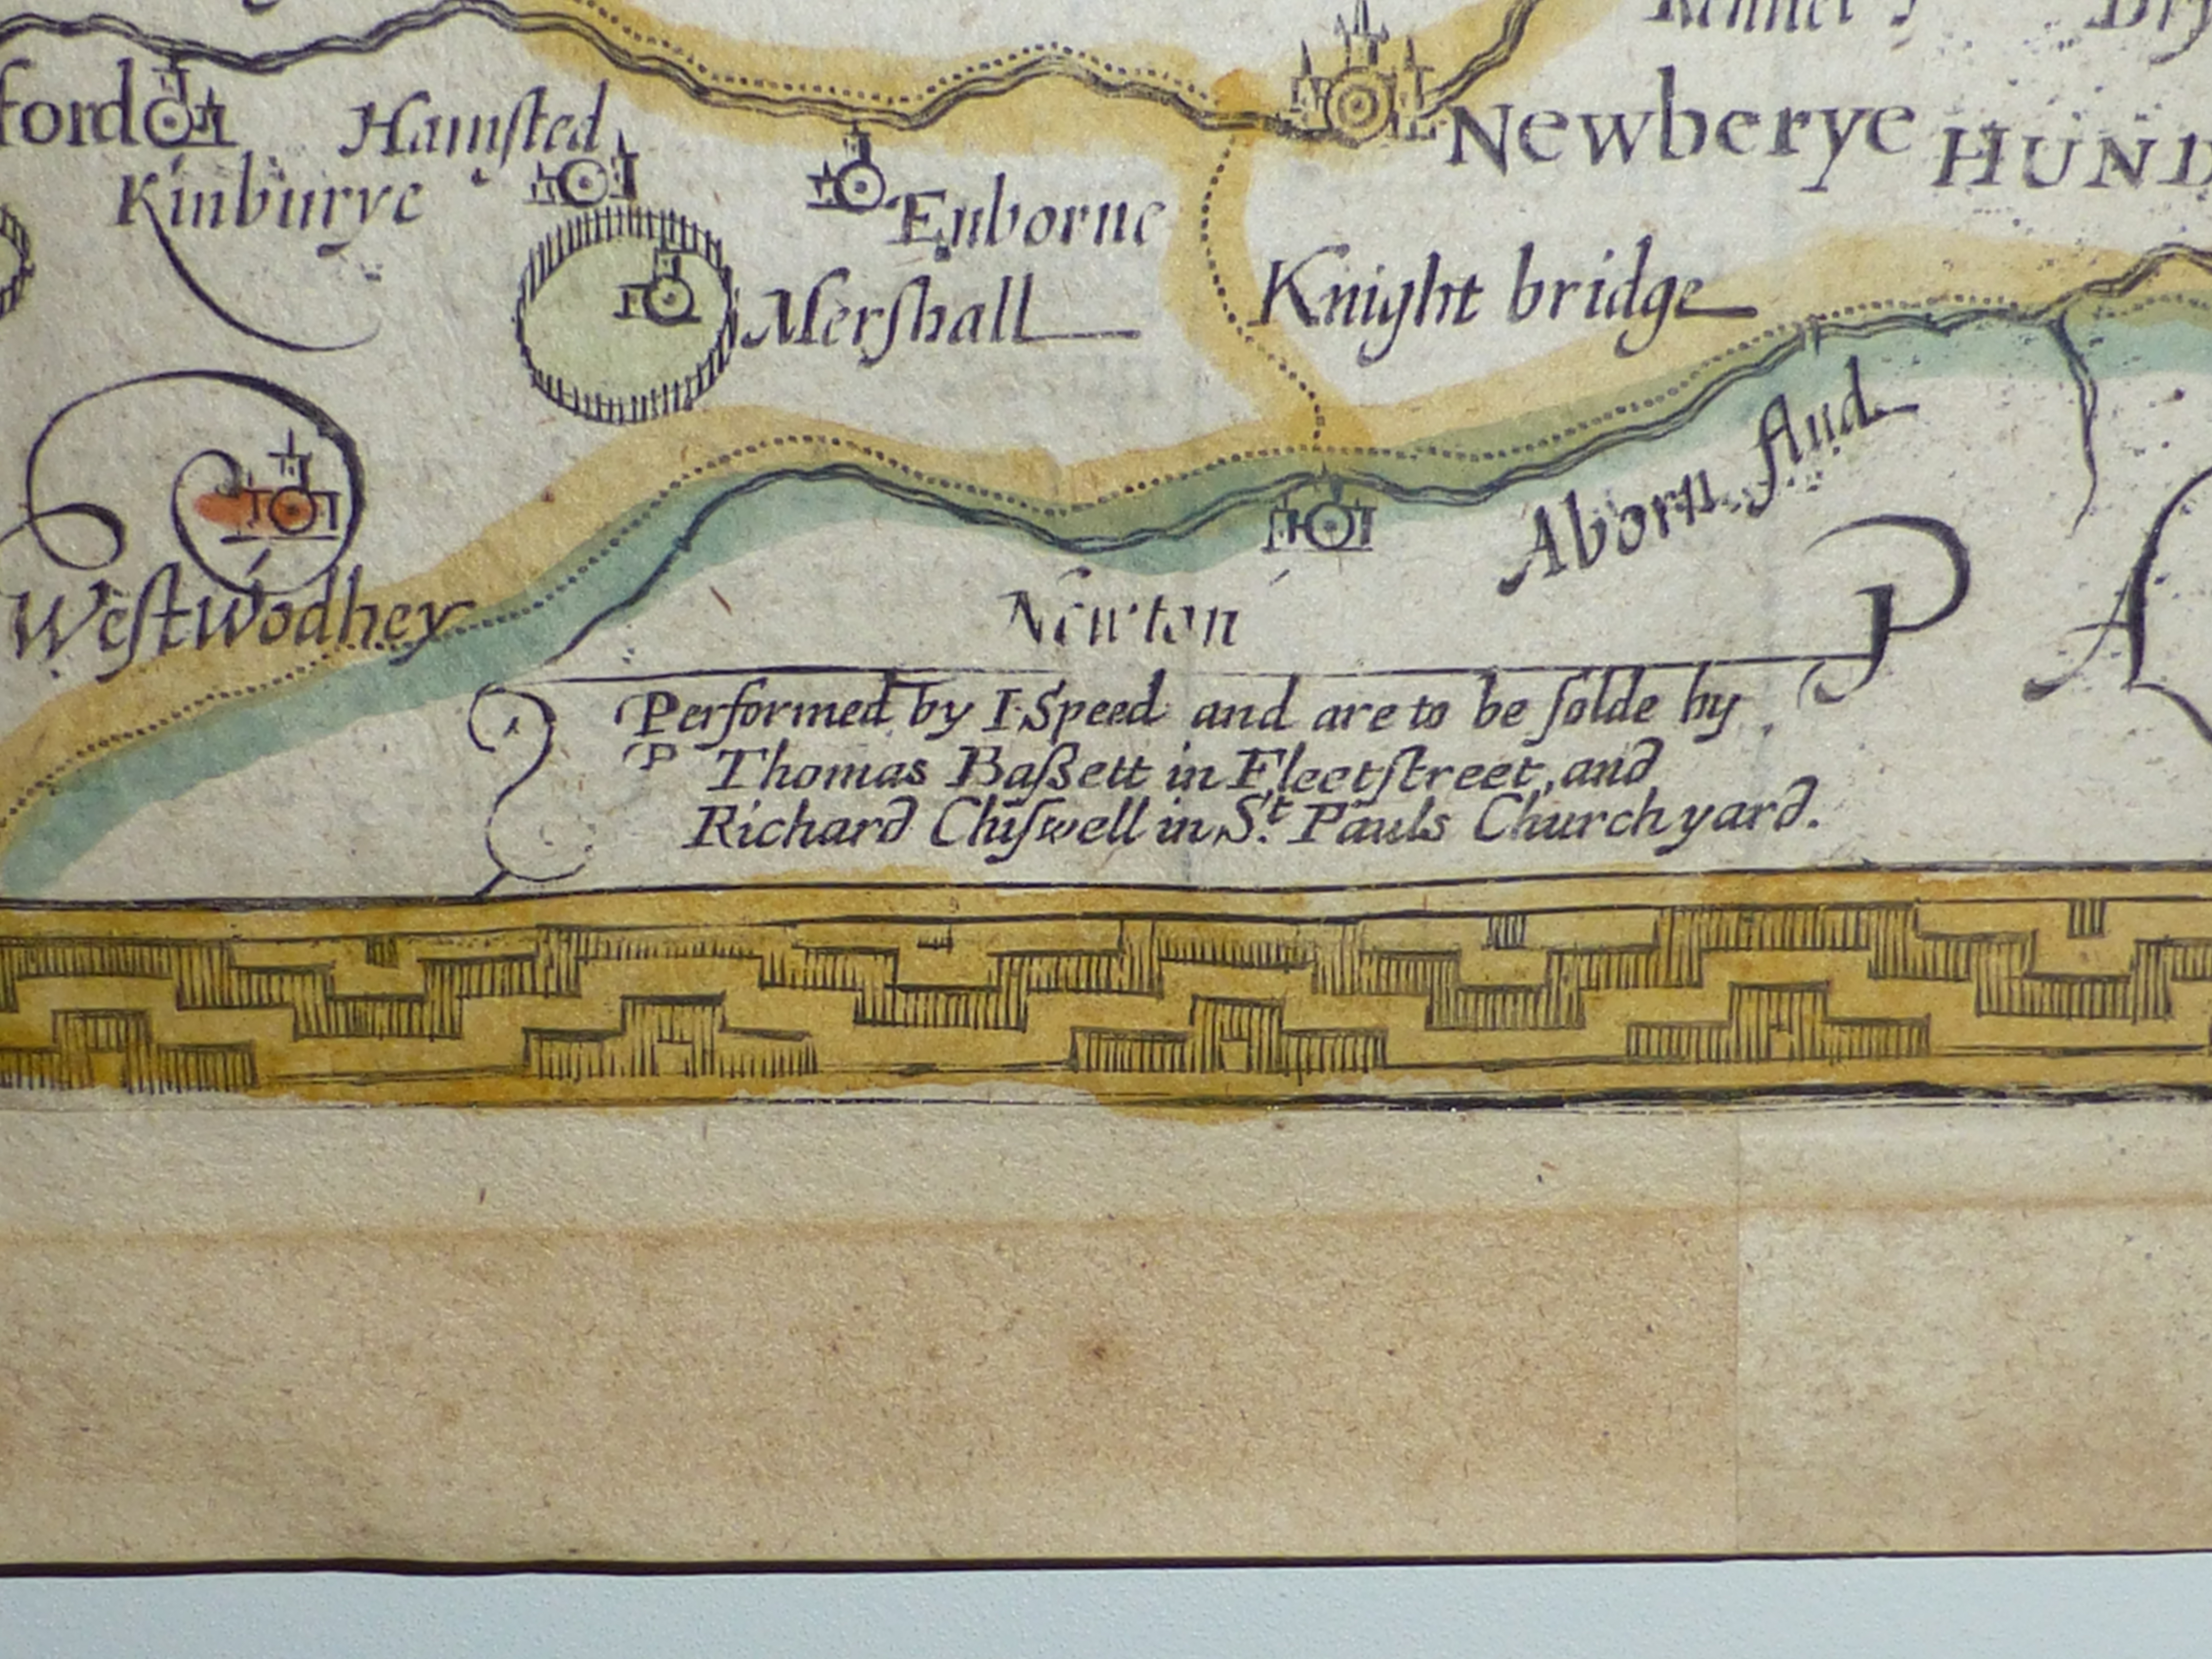 ford
Hamſted
Newberye
HUND
Kinburye
Enborne
Knight bridge
Merſhall
Aborn flud
Weſtwodhey
Newton
P A
Performed by I. Speed and are to be ſolde by
Thomas Baßett in Fleetſtreet, and
Richard Chiſwell in St. Pauls Churchyard.